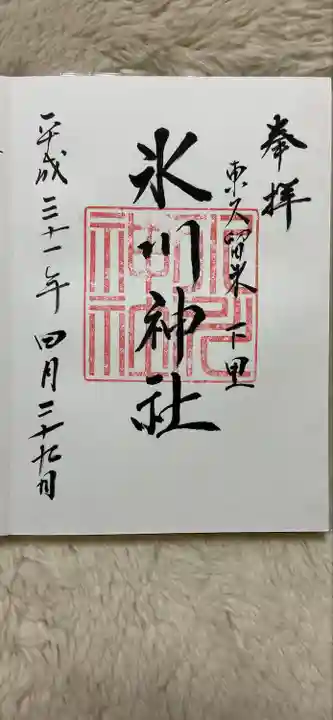 奉拝
東久留米 下里
氷川神社
平成三十一年 四月二十九日